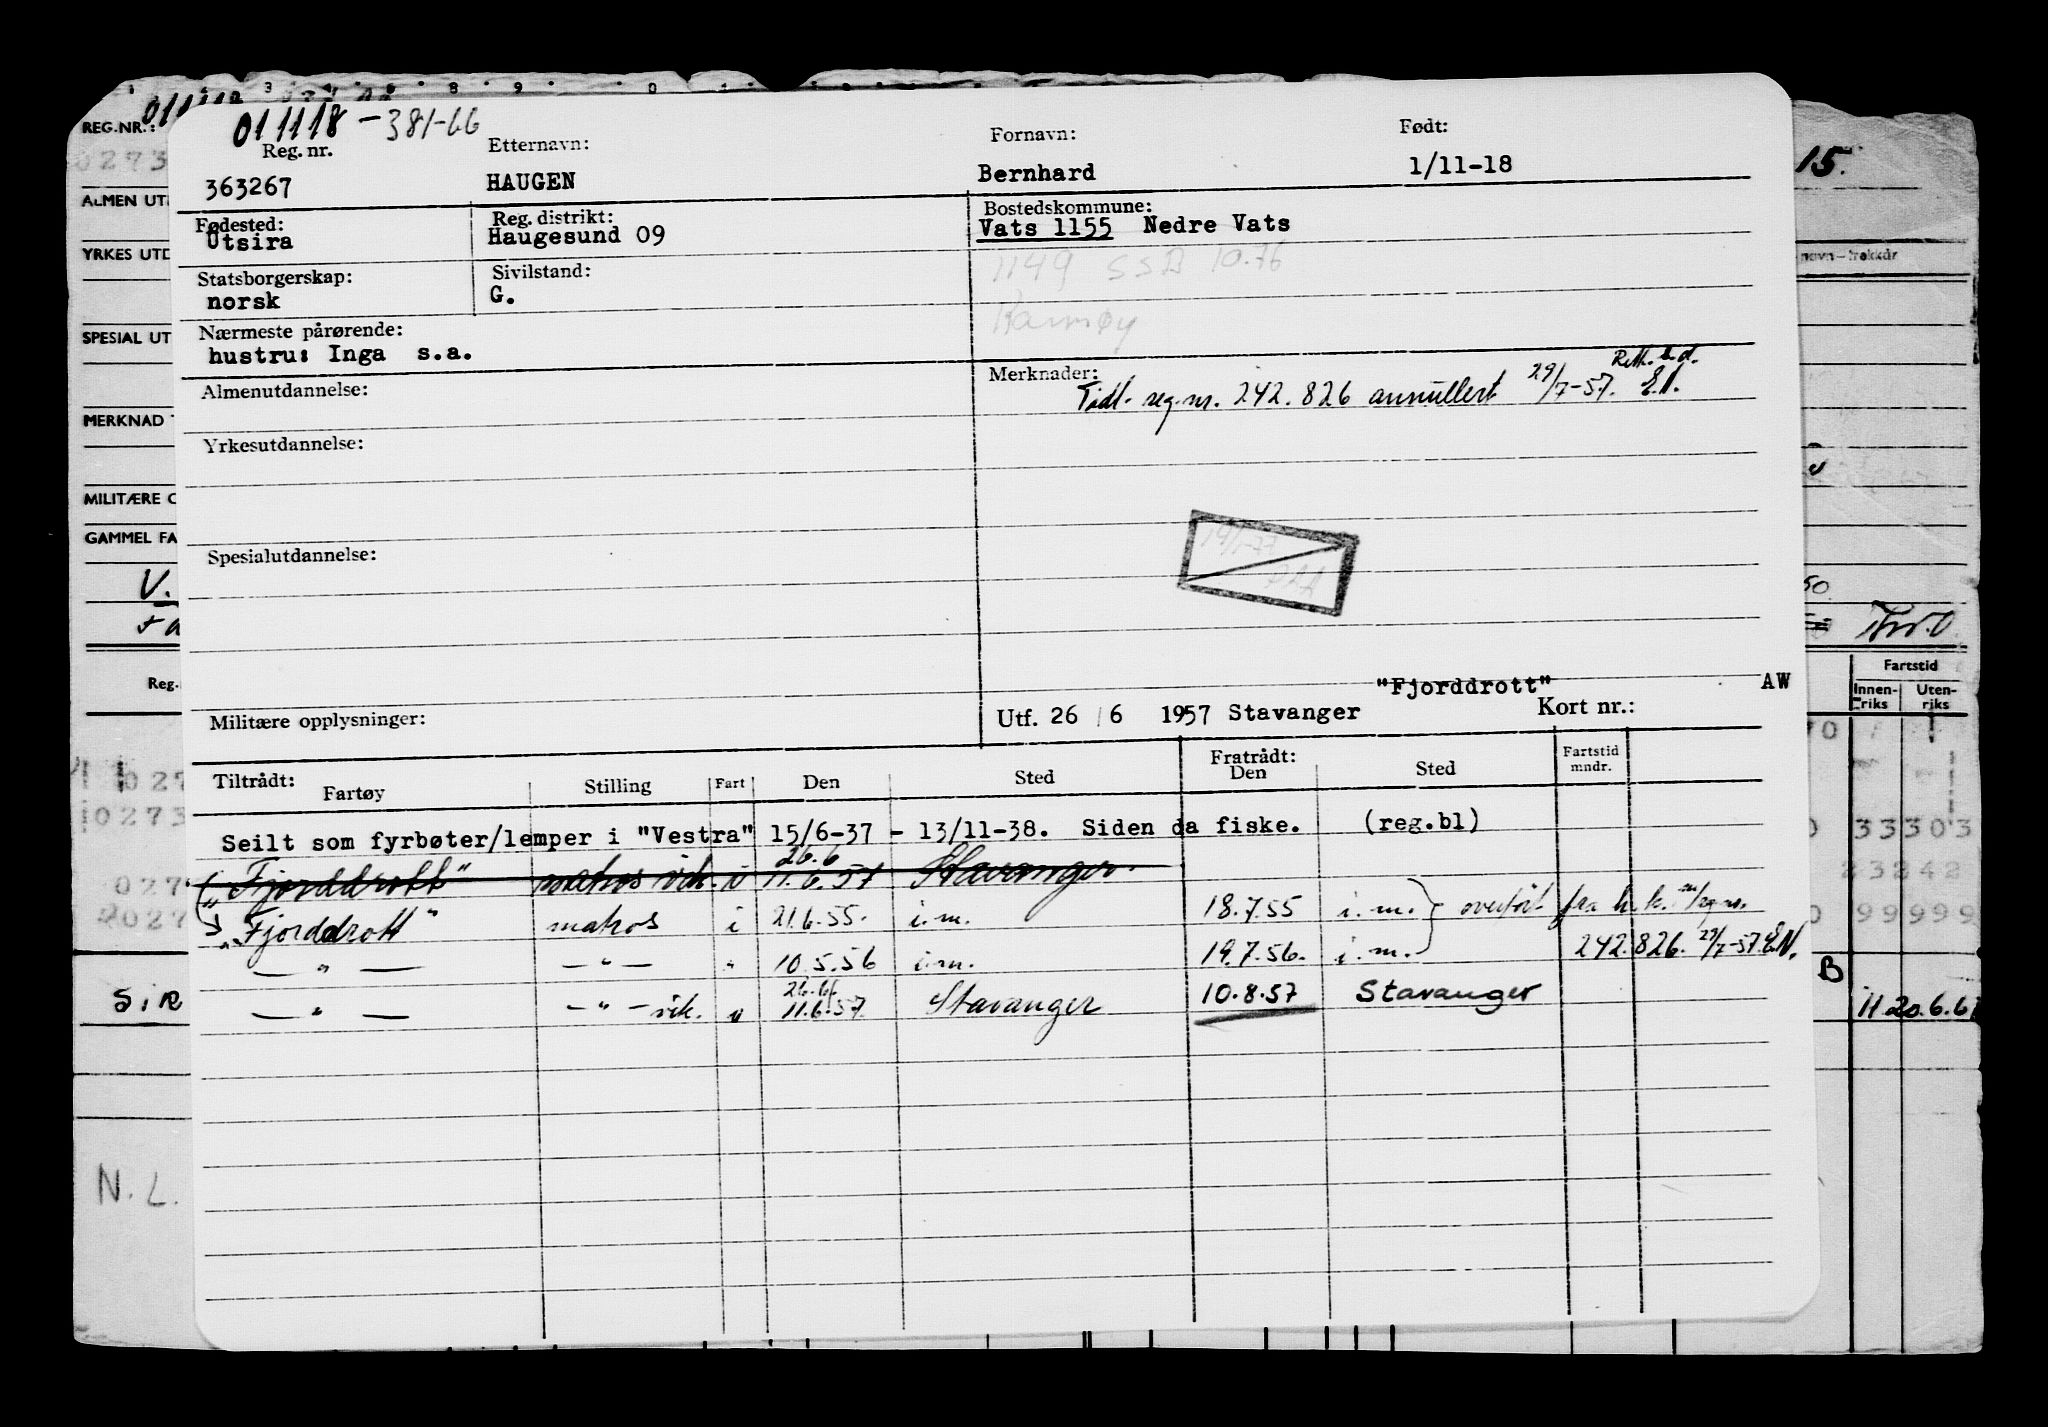 011118-381-66
Reg. nr. Etternavn: Fornavn: Født:
363267 HAUGEN Bernhard 1/11-18
Fødested: Reg. distrikt: Bostedskommune:
Utsira Haugesund 09 Vats 1155 Nedre Vats
Statsborgerskap: Sivilstand: 1149 SSB 10.76
norsk G. Karmøy
Nærmeste pårørende:
hustru: Inga s.a.
Almenutdannelse: Merknader: Tidl. reg.nr. 242.826 annullert 29/7-57. E.N.
Yrkesutdannelse:
Spesialutdannelse:
"Fjorddrott" AW
Militære opplysninger: Utf. 26/6 1957 Stavanger Kort nr.:
Tiltrådt: Fratrådt: Fartstid
Fartøy Stilling Fart Den Sted Den Sted mndr.
Seilt som fyrbøter/lemper i "Vestra" 15/6-37 - 13/11-38. Siden da fiske. (reg.bl)
26.6
"Fjorddrott" matros vik. i 11.6.57 Stavanger.
"Fjorddrott" matros i 21.6.55 i.m. 18.7.55 i.m. overført fra h.k. m/reg.nr.
— " — — " — " 10.5.56 i.m. 19.7.56. i.m. 242.826. 29/7-57. E.N.
— " — — " — vik. i 11.6.57 Stavanger 10.8.57 Stavanger
REG.NR.:
ALMEN UT
YRKES UTD
SPESIAL UT
MERKNAD
MILITÆRE O
GAMMEL FA
V.
Reg.
N.L.
15.
navn-trekkår
Fartstid
Innenriks Utenriks
B
11 20.6.6